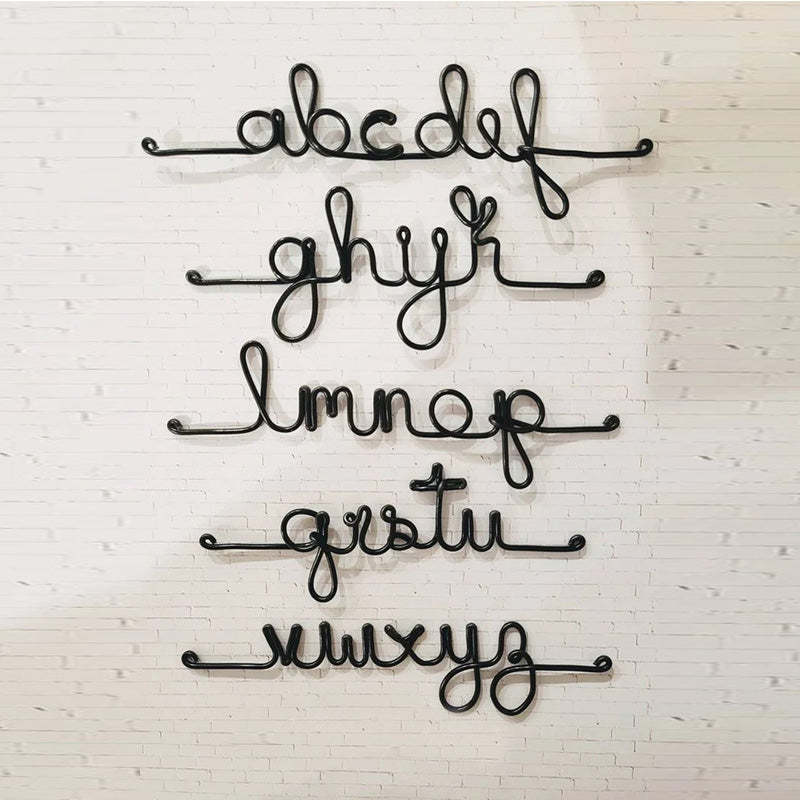 abcdef
ghijk
lmnop
qrstu
vwxyz